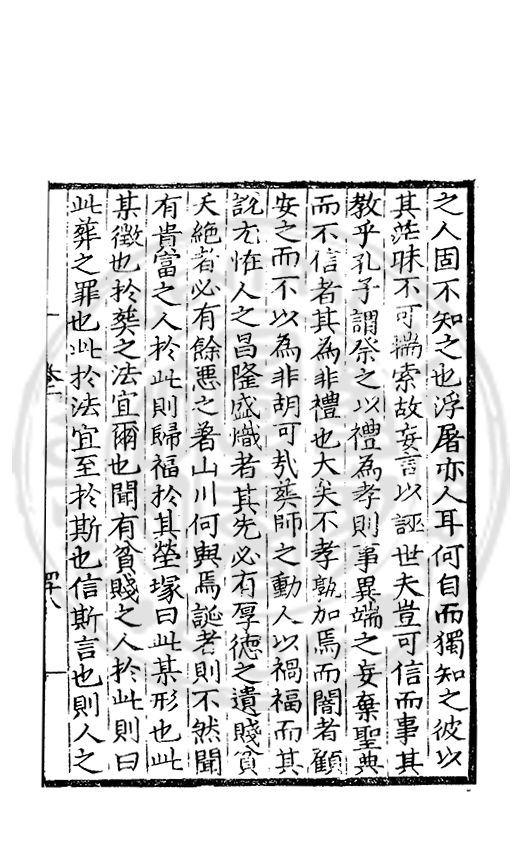 之人固不知之也浮屠亦人耳何自而獨知之彼以
其茫昧不可揣索故妄言以誣世夫豈可信而事其
教乎孔子謂祭之以禮為孝則事異端之妄棄聖典
而不信者其為非禮也大矣不孝孰加焉而闇者顧
安之而不以為非胡可㢤葬師之動人以禍福而其
說尤恠人之昌隆盛熾者其先必有厚德之遺賤貧
夭絶者必有餘惡之著山川何與焉誕者則不然聞
有貴富之人於此則歸福於其塋塚曰此某形也此
某徵也於葬之法宜爾也聞有貧賤之人於此則曰
此葬之罪也此於法宜至於斯也信斯言也則人之
卷一